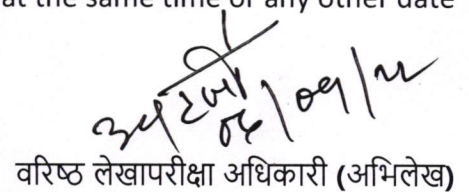 at the same time or any other date
वरिष्ठ लेखापरीक्षा अधिकारी (अभिलेख)